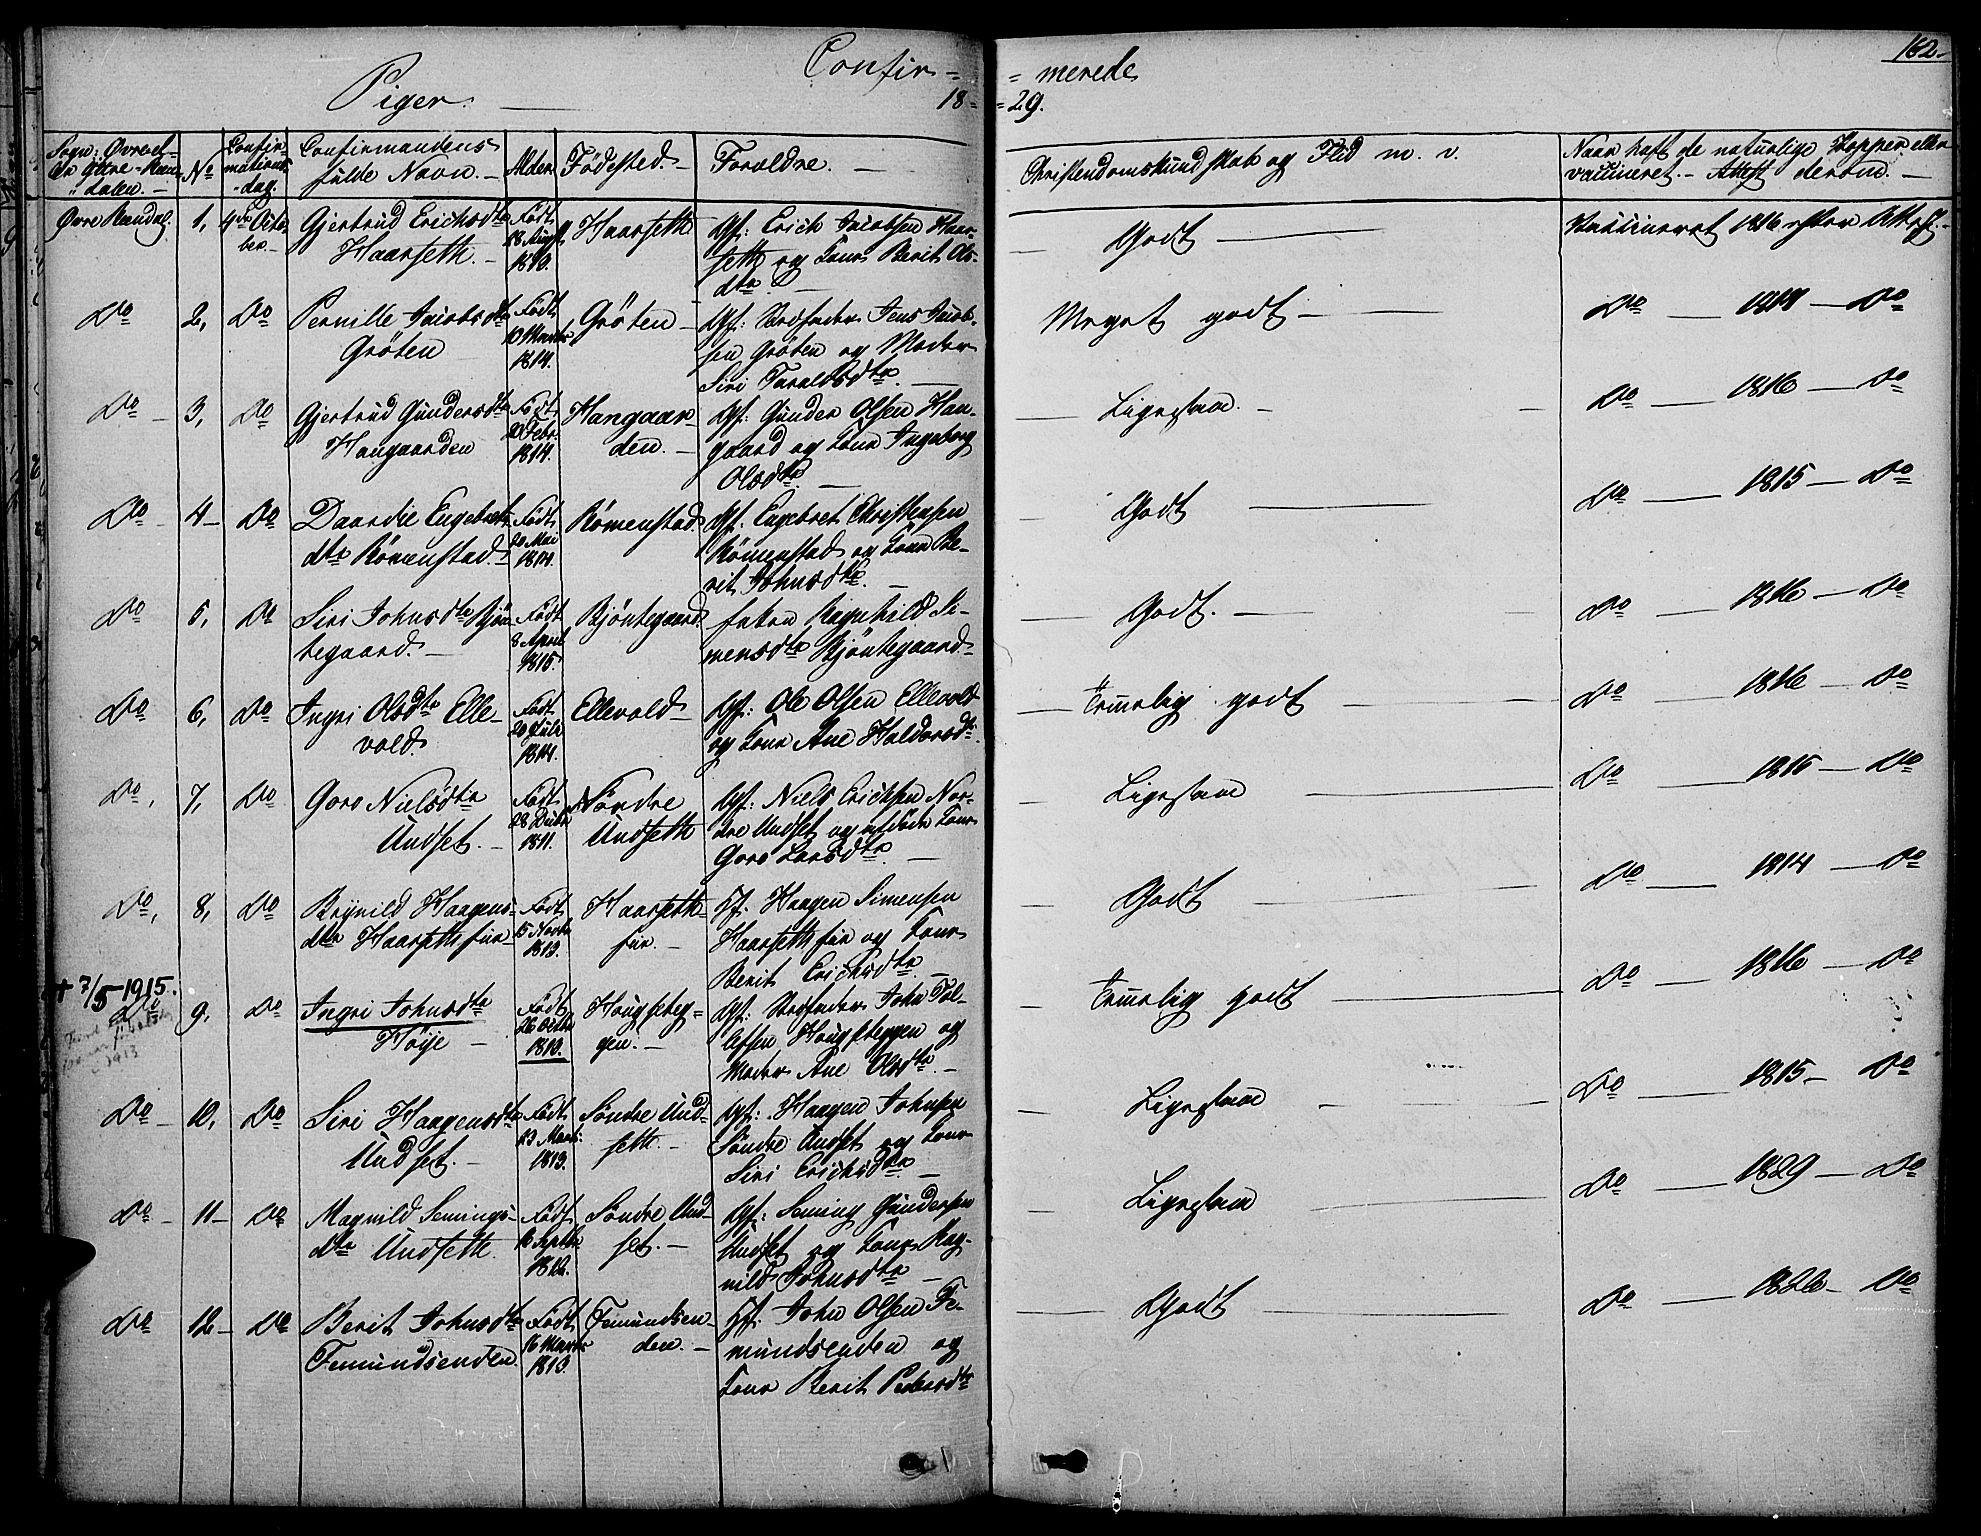 182.
Confir= =merede
Piger. 18= =29.
Sogn: Øvre el-
ler Yttre-Ren-
dalen. No Confir-
mations-
dag. Confirmandens
fulde Navn. Alder Födested. Forældre. Christendomskundskab og Flid m. v. Naar haft de naturlige Kopper eller
vaccineret. Attest derom.
Øvre Rendal. 1, 4de Octo-
ber. Gjertrud Erichsdtr
Haarseth. Født
1813. Haarseth Gf: Erich Jacobsen Haar-
seth og Kone Berit Ols-
dtr. Godt Vaccineret 1816 efter Attest.
Do 2, Do Pernille Jacobsdtr
Gröten Født
13 Marts
1814. Gröten Gf: Stedfader Jens Jacob-
sen Gröten og Moder
Siri Taraldsdtr. Meget godt Do 1814 Do
Do 3, Do Gjertrud Gundersdtr
Hangaarden Født
20 Febr.
1814. Hangaar-
den. Gf: Gunder Olsen Han-
gaard og Kone Ingeborg
Olsdtr. Ligesaa. Do 1816 Do
Do 4 Do Daardie Engebrets-
dtr Römenstad. Født
20 Mai
1814. Römenstad Gf. Engebret Christensen
Römenstad og Kone Be-
rit Johnsdtr. Godt Do 1815 Do
Do 5, Do Siri Johnsdtr Bjön-
tegaard. Født
8 April
1815. Bjöntegaard. Enken Ragnhild Si-
mensdtr Bjöntegaard. Godt. Do 1816 Do
Do 6, Do Ingri Olsdtr Elle-
vold. Født
20 Juli
1814. Ellevold Gf: Ole Olsen Ellevold
og Kone Ane Haldorsdtr. Temmelig godt Do 1816 Do
Do, 7, Do Goro Nielsdtr
Undset. Født
28 Decbr
1811. Nordre
Undseth Gf: Niels Erichsen Nor-
dre Undset og afdöde Kone
Goro Larsdtr. Ligesaa Do 1815 Do
Do, 8, Do Brynild Haagens-
dtr Haarsethsür Født
15 Novbr
1813. Haarseth-
sür. Hf. Haagen Simensen
Haarsethsür og Kone
Berit Erichsdtr. Godt Do 1814 Do
+ 7/5 1915.
Do 9, Do Ingri Johnsdtr
Höÿe Født
26 Octbr
1813. Hougsteg-
gen. Gf: Stedfader John Tol-
lefsen Hougsteggen og
Moder Ane Olsdtr. Temmelig godt Do 1816 Do
Do 10, Do Siri Haagensdtr
Undset. Født
13 Marts
1813. Söndre Und-
seth. Gf: Haagen Johnsen
Söndre Undset og Kone
Siri Erichsdtr. Ligesaa Do 1815 Do
Do 11 Do Magnild Semings-
dtr Undseth. Født
16 Septbr
1812. Söndre Und-
set. Gf: Seming Gundersen
Undset og Kone Mag-
nild Johnsdtr. Ligesaa Do 1829 Do
Do 12 Do Berit Johnsdtr
Femundsenden Født
16 Marts
1813. Femundsen-
den. Hf. John Olsen Fe-
mundsenden og
Kone Berit Pedersdtr Godt Do 1826 Do